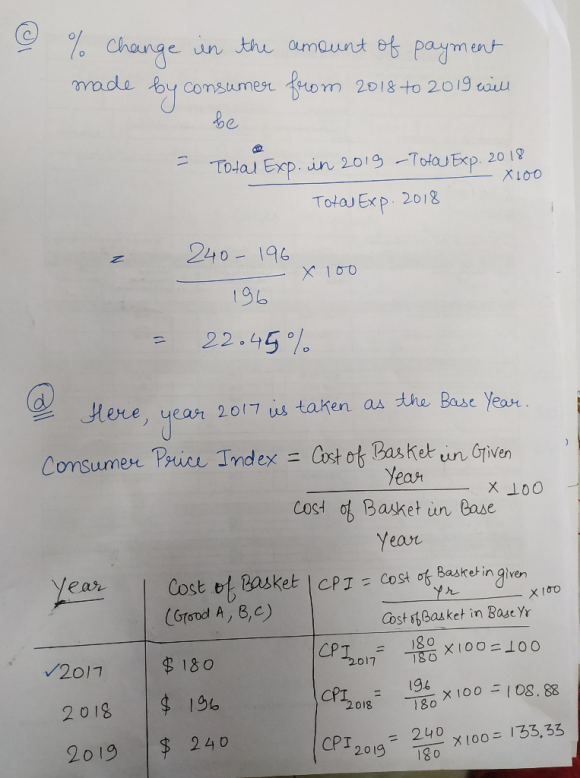 (c) % Change in the amount of payment
made by consumer from 2018 to 2019 will
be
= Total Exp. in 2019 - Total Exp. 2018
× 100
Total Exp. 2018
= 240 - 196
× 100
196
= 22.45%
(d) Here, year 2017 is taken as the Base Year.
Consumer Price Index = Cost of Basket in Given
Year
× 100
Cost of Basket in Base
Year
Year | Cost of Basket | CPI = Cost of Basket in given
(Good A, B, C) yr × 100
Cost of Basket in Base Yr
✓2017 $ 180 CPI2017 = 180/180 × 100 = 100
2018 $ 196 CPI2018 = 196/180 × 100 = 108.88
2019 $ 240 CPI2019 = 240/180 × 100 = 133.33